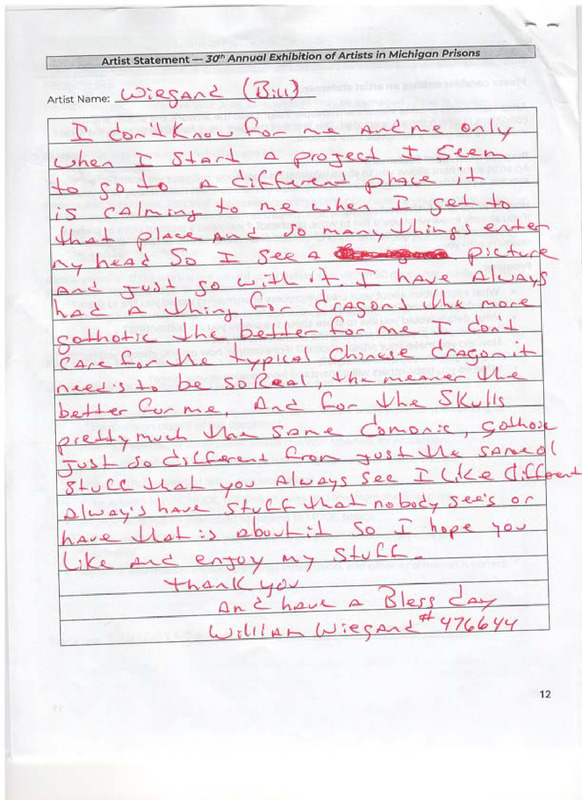 Artist Statement — 30th Annual Exhibition of Artists in Michigan Prisons
Artist Name: Wiegand (Bill)
I don't know for me and me only
when I start a project I seem
to go to a different phace it
is calming to me when I get to
that place and so many things enter
my head so I see a picture
and just go with it. I have always
had a thing for dragons the more
gothotic the better for me I don't
care for the typical Chinese dragon it
need's to be so Real, the meaner the
better for me, And for the Skulls
pretty much the same domonic, gothoic
just so different from just the same ol
stuff that you Always see I like different
Always have stuff that nobody see's or
have that is about it so I hope you
like and enjoy my stuff.
thank you
And have a Bless day
William Wiegand #476644
12